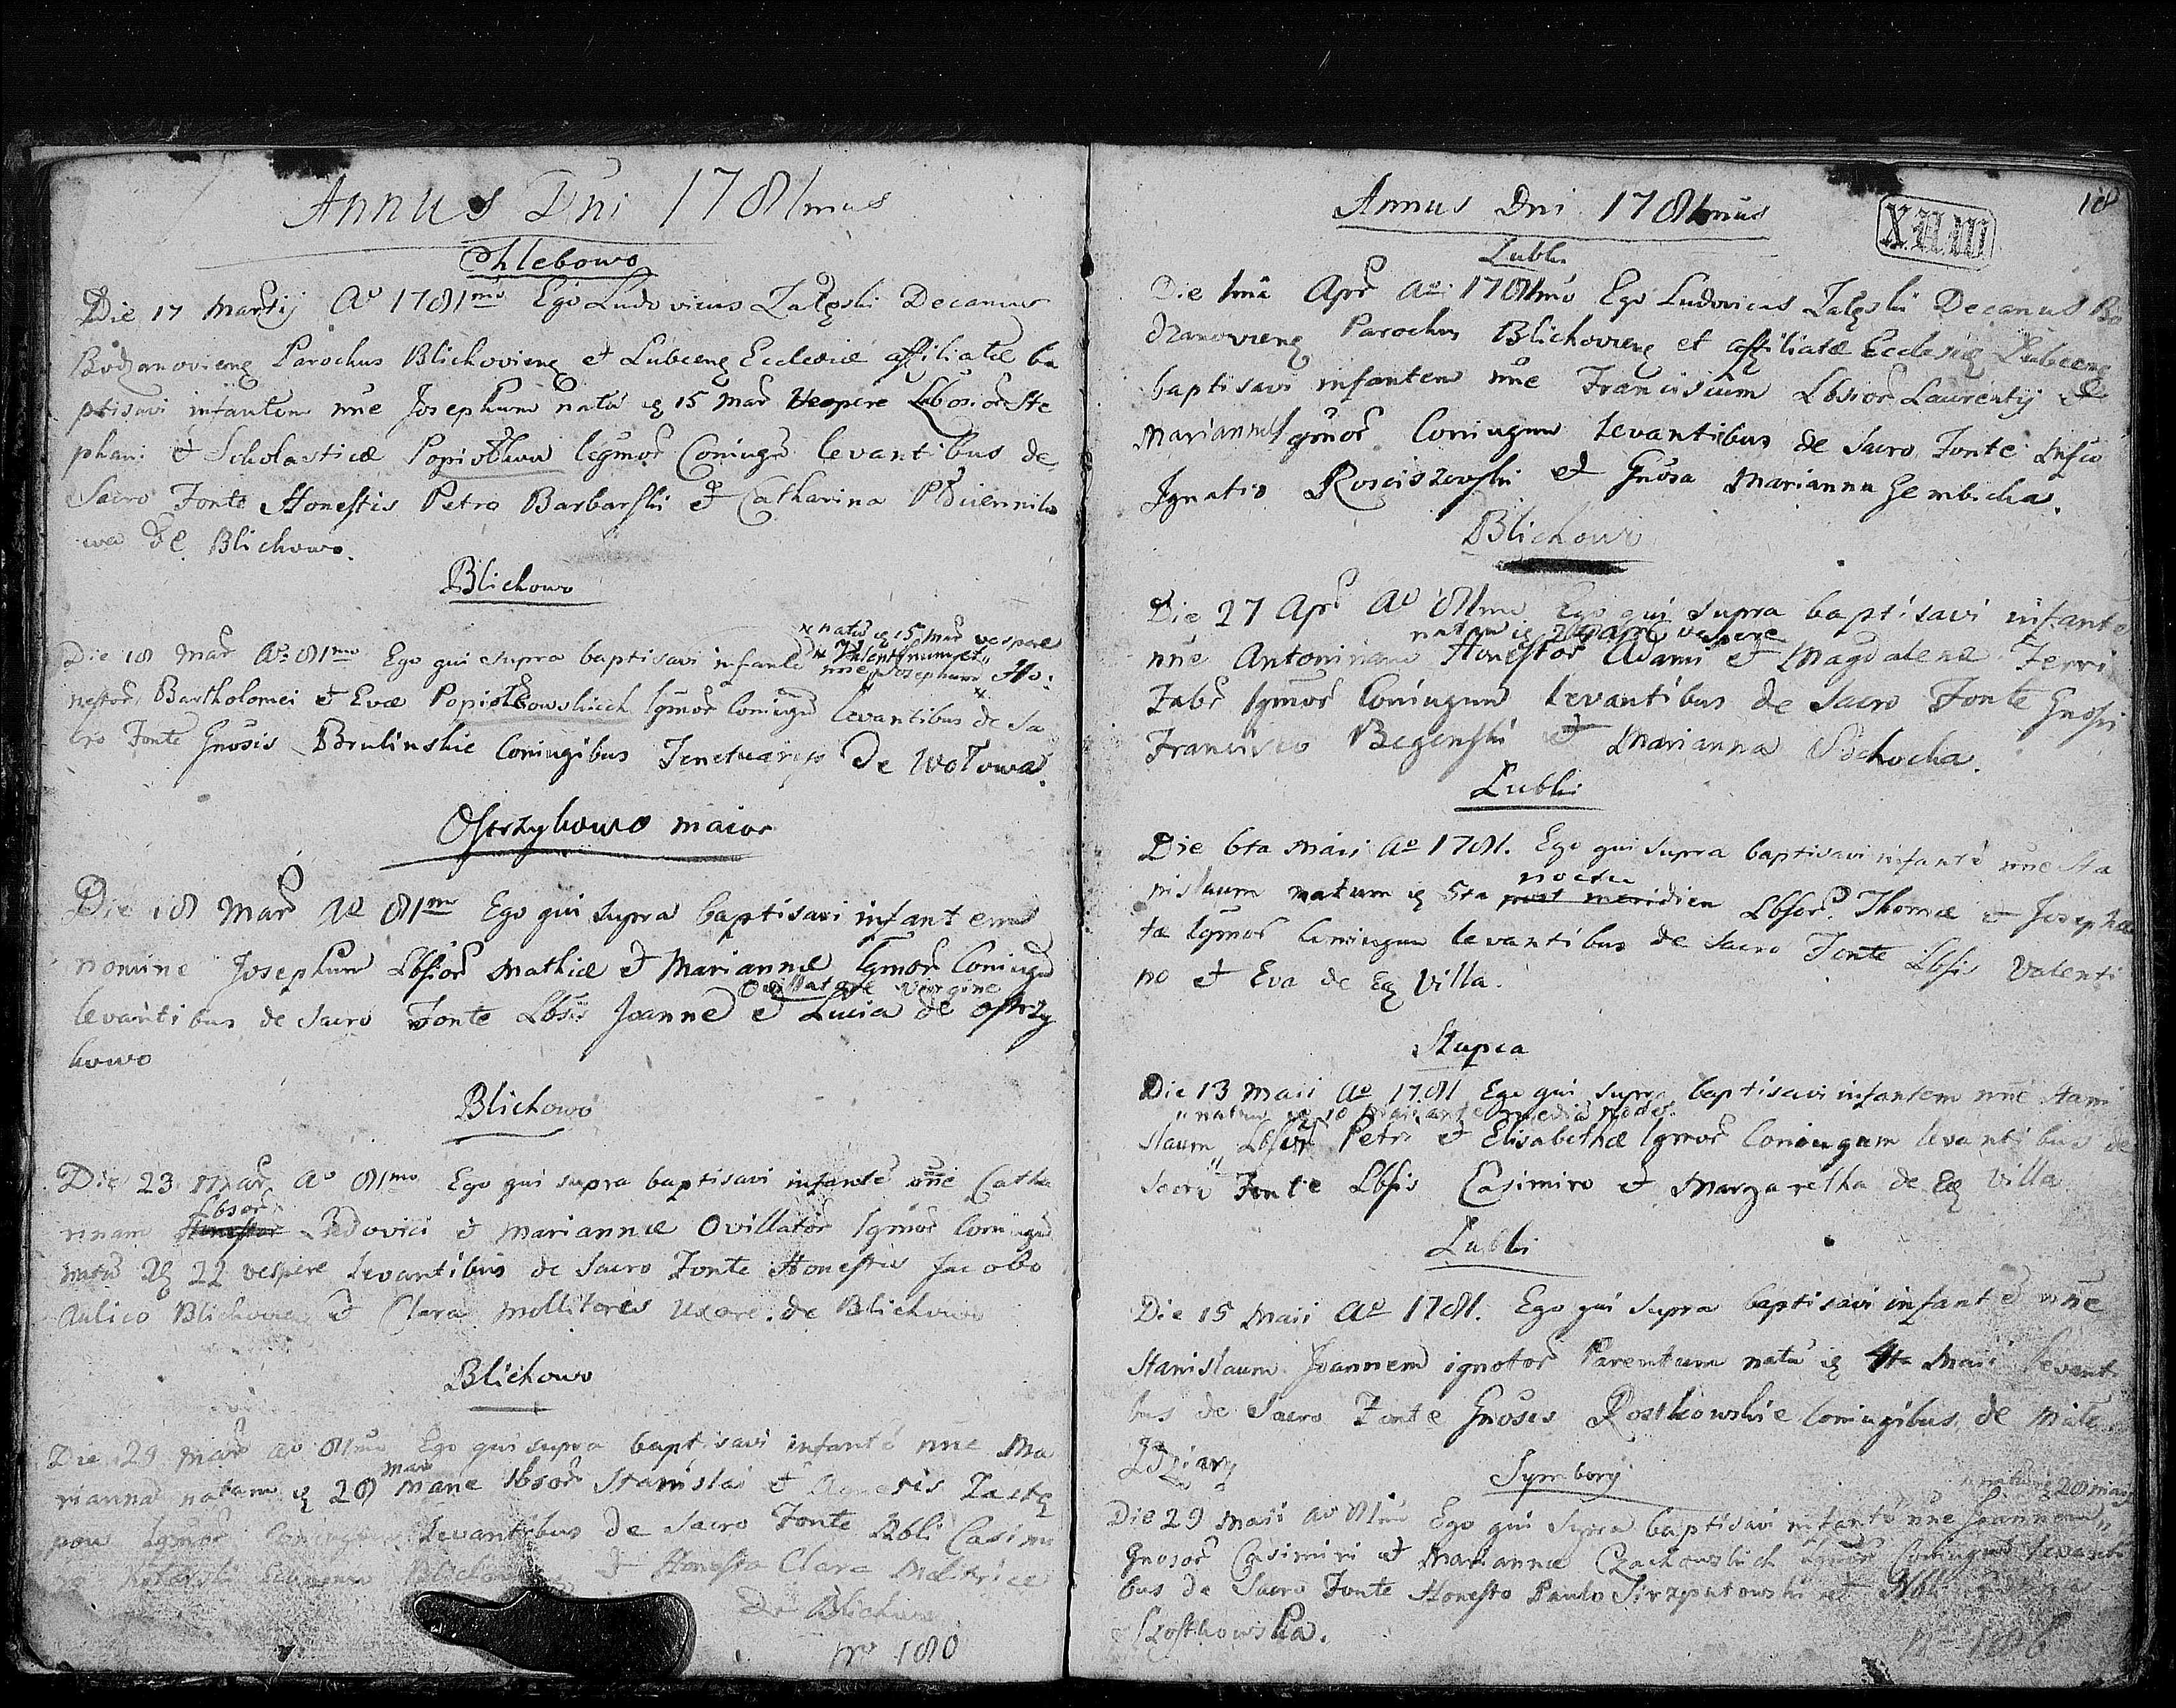 Annus Dni 1781mus
Chlebowo
Die 17 Martij Ao 1781mo Ego Ludovicus Zalęski Decanus
Bodzanovieng Parochus Blichovieng et Lubceng Ecclesiæ affiliatæ ba
ptisavi infantem nne Josephum natū 15 Mar Vespere Lbosior Ste
phani et Scholasticæ lēgmor Coniugū levantibus de
Sacro Fonte Honestis Petro Barbarski et Catharina
wa de Blichowo.
Blichowo
x natū 15 Mar vespere
Die 18 Mar Ao 81mo Ego qui supra baptisavi infante x Valentinum et
nne Josephum Ho:
nestor Bartholomei et Evæ lgmor Coniugū levantibus de Sa
cro Fonte Gnosis Brulinskie Coniugibus de Wolowa.
Ostrzykowo maior
Die 18 Mar Ao 81mo Ego qui supra baptisavi infantem
nomine Josephum Lbsior Mathiæ et Mariannæ lgmor Coniugū
Ovillatore virgine
levantibus de Sacro Fonte Lbsis Joanne et Lucia de Ostrzy
kowo
Blichowo
Die 23 Mar Ao 81mo Ego qui supra baptisavi infantē nne Catha
Lbsor
rinam Honestor Ludovici et Mariannæ Ovillator lgmor Coniugū
natū 22 vespere levantibus de Sacro Fonte Honestis Jacobo
Aulico Blichovieng et Clara Mollitoris Uxore de Blichowo
Blichowo
Die 29 Mar Ao 81mo Ego qui supra baptisavi infantē nne Ma
Mar
riannā natam 28 mane lbsor Stanislai et Agnetis
lgmor Coniugum levantibus de Sacro Fonte Nbli Casimi
ro et Honesta Clara Molitrice
De Blichowo
No 180
Annus Dni 1781mus
18
XVIII
Lubki
Die 1ma Apr Ao 1781mo Ego Ludovicus Zalęski Decanus Bo
dzanovieng Parochus Blichovieng et affiliatæ Ecclesiæ Lubceng
baptisavi infantem nne Franciscum Lbsior Laurentij et
Mariannæ lgmor Coniugum levantibus de Sacro Fonte
Ignatio Rosciszewski et Gnosa Marianna Gembicka.
Blichowo
Die 27 Apr Ao 81mo Ego qui supra baptisavi infante
natam Apr vespere
nne Antoninam Honestor Adami et Magdalenæ Ferri
Fabr lgmor Coniugum levantibus de Sacro Fonte Gnosis
Francisco et Marianna
Lubki
Die 6ta Maii Ao 1781. Ego qui supra baptisavi infantē nne Sta
noctu
nislaum natum 5ta post meridien Lbsor Thomæ et Josepha
tæ lgmor Coniugum levantibus de Sacro Fonte Lbsis Valenti
no et Eva de Eą Villa.
Słupca
Die 13 Maii Ao 1781 Ego qui supra baptisavi infantem nne Stani
natum 10 Maii ante media nocte
slaum Lbsior Petri et Elisabethæ lgmor Coniugum levantibus de
Sacro Fonte Lbsis Casimiro et Margaretha de Eą Villa
Lubki
Die 15 Maii Ao 1781. Ego qui supra baptisavi infantē nne
Stanislaum Joannem ignotor Parentum natū 4ta Maii levanti
bus de Sacro Fonte Gnosis Rostkowskie Coniugibus de
Symbory
natum 28 Maij
Die 29 Maii Ao 81mo Ego qui supra baptisavi infantē nne Joannem
Gnosor Casimiri et Mariannæ Czachowskich lgmor Coniugum levanti
bus de Sacro Fonte Honesto Paulo et Nbli
Rostkowska.
No 186